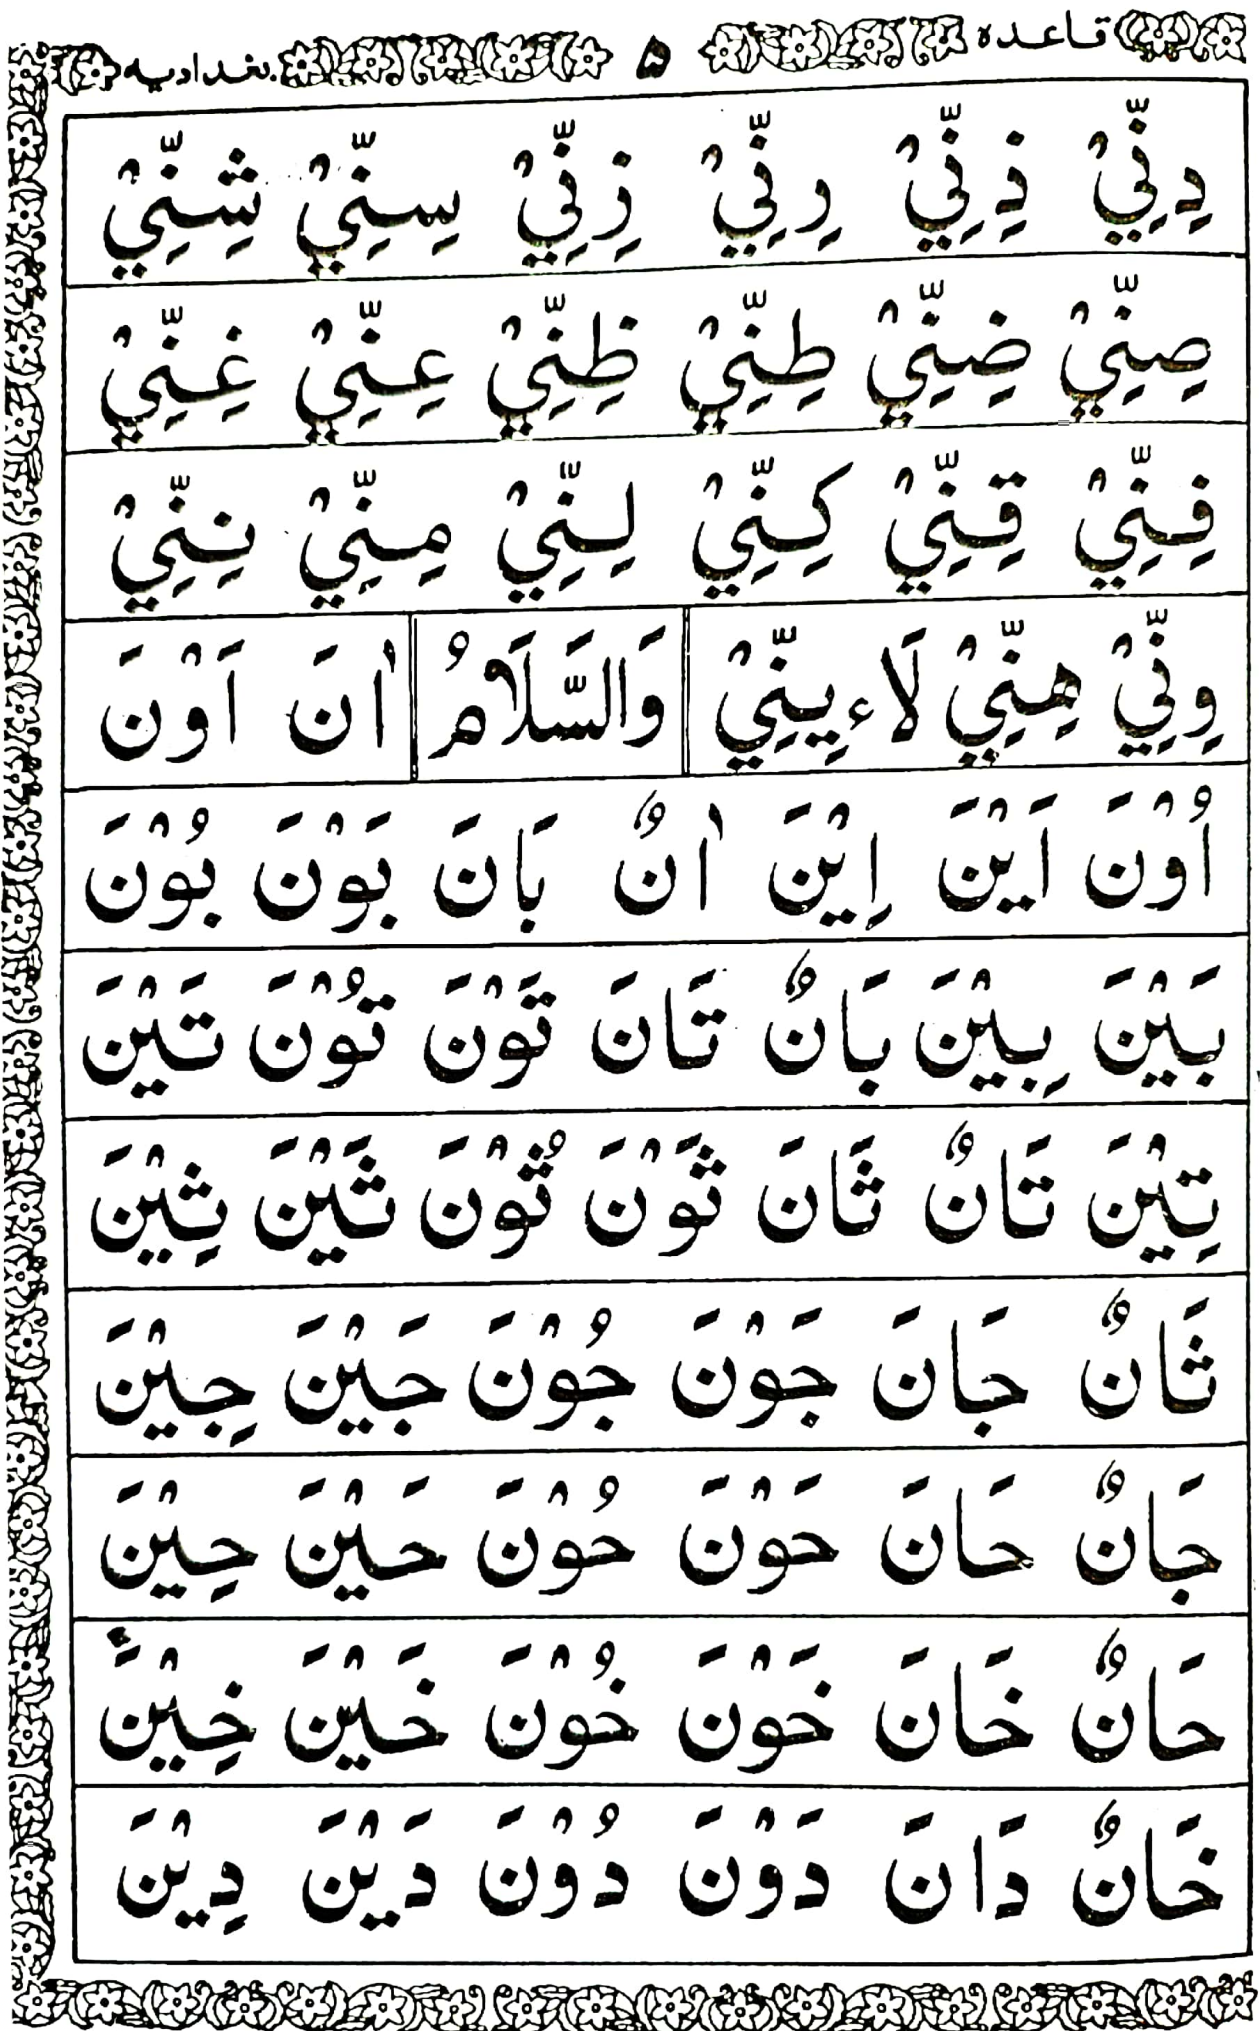 قاعده ۵ بغدادیه
دِنِّيْ ذِنِّيْ رِنِّيْ زِنِّيْ سِنِّيْ شِنِّيْ
صِنِّيْ ضِنِّيْ طِنِّيْ ظِنِّيْ عِنِّيْ غِنِّيْ
فِنِّيْ قِنِّيْ كِنِّيْ لِنِّيْ مِنِّيْ نِنِّيْ
وِنِّيْ هِنِّيْ لَاءِيِنِّيْ وَالسَّلَامُ اٰنَ اَوْنَ
اُوْنَ اَيْنَ اِيْنَ اٰنٌ بَانَ بَوْنَ بُوْنَ
بَيْنَ بِيْنَ بَانٌ تَانَ تَوْنَ تُوْنَ تَيْنَ
تِيْنَ تَانٌ ثَانَ ثَوْنَ ثُوْنَ ثَيْنَ ثِيْنَ
ثَانٌ جَانَ جَوْنَ جُوْنَ جَيْنَ جِيْنَ
جَانٌ حَانَ حَوْنَ حُوْنَ حَيْنَ حِيْنَ
حَانٌ خَانَ خَوْنَ خُوْنَ خَيْنَ خِيْنَ
خَانٌ دَانَ دَوْنَ دُوْنَ دَيْنَ دِيْنَ